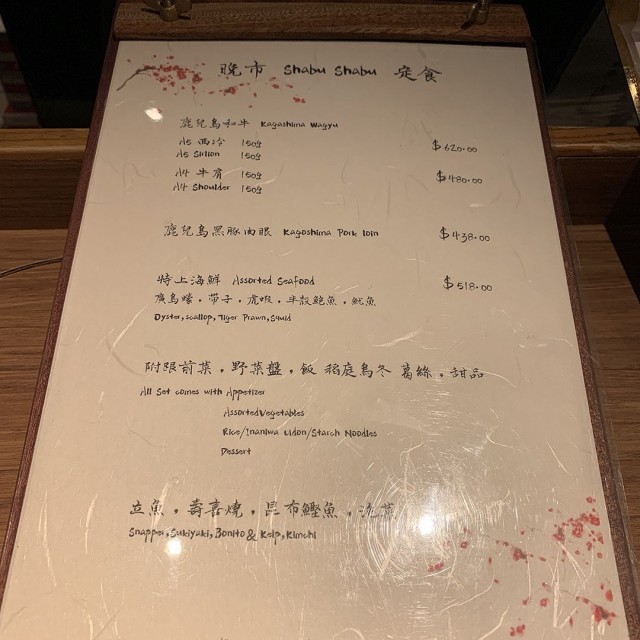 晚市 Shabu Shabu 定食
鹿兒島和牛 Kagoshima Wagyu
A5 西冷 150g
A5 Sirlion 150g
$620.00
A4 牛肩 150g
A4 Shoulder 150g
$480.00
鹿兒島黑豚肉眼 Kagoshima Pork loin
$438.00
特上海鮮 Assorted Seafood
$518.00
廣島蠔，帶子，虎蝦，半殼鮑魚，魷魚
Oyster, scallop, Tiger Prawn, Squid
附跟前菜，野菜盤，飯 稻庭烏冬 葛絲，甜品
All Set comes with Appetizer
Assorted Vegetables
Rice/Inaniwa Udon/Starch Noodles
Dessert
立魚，壽喜燒，昆布鰹魚，泡菜
Snapper, Sukiyaki, Bonito & Kelp, Kimchi